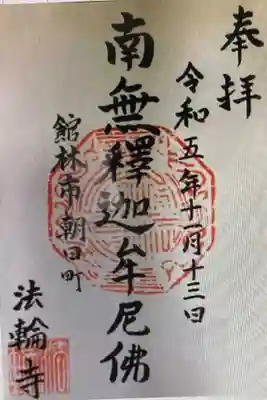 奉拝
令和五年十一月十三日
南無釋迦牟尼佛
館林市朝日町
法輪寺